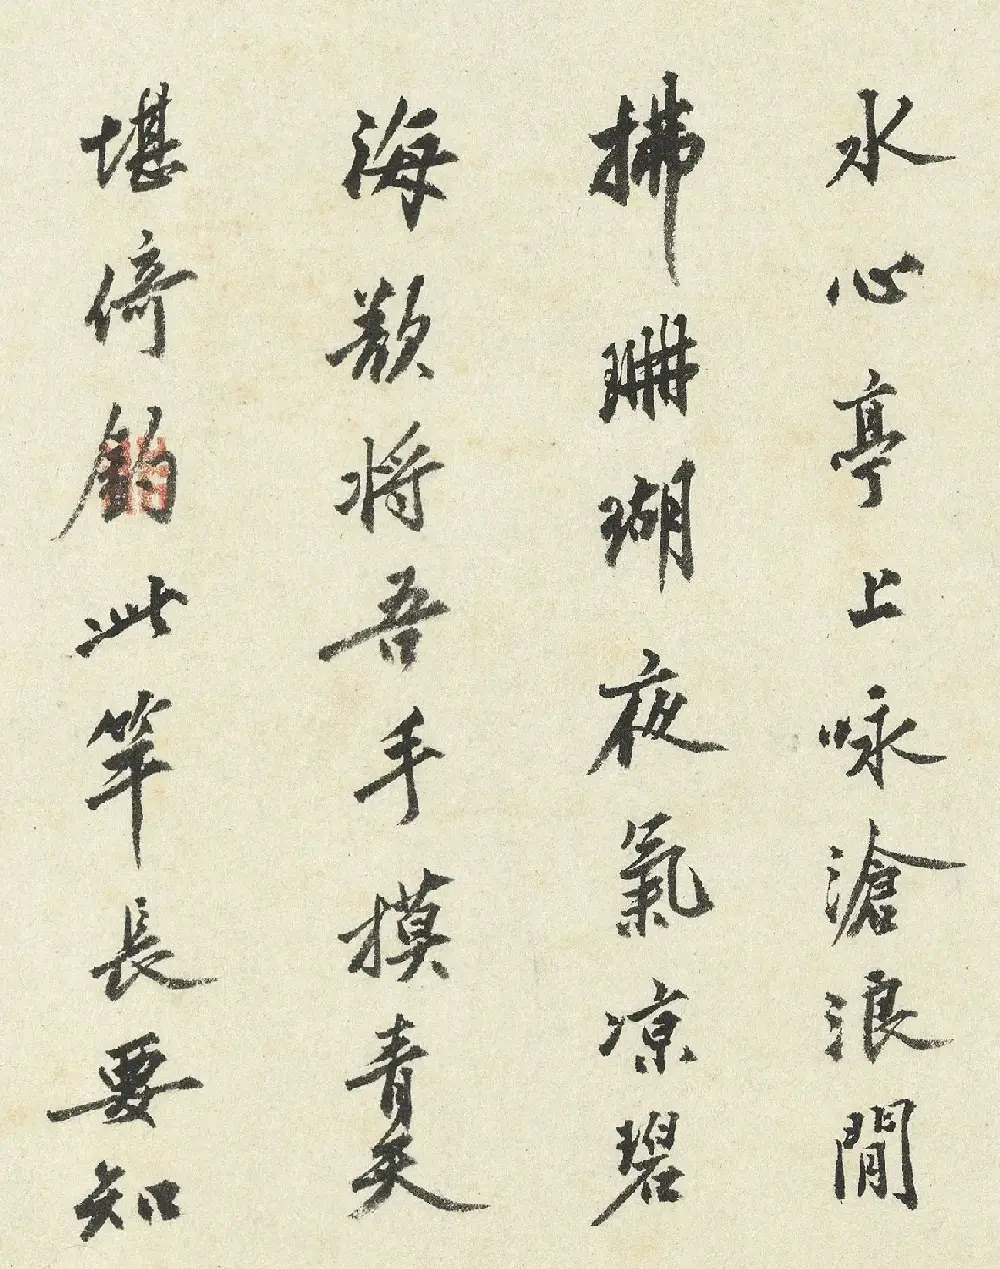 水心亭上咏滄浪閒
拂珊瑚夜氣凉碧
海歎將吾手摸青天
堪倚釣此竿長要知